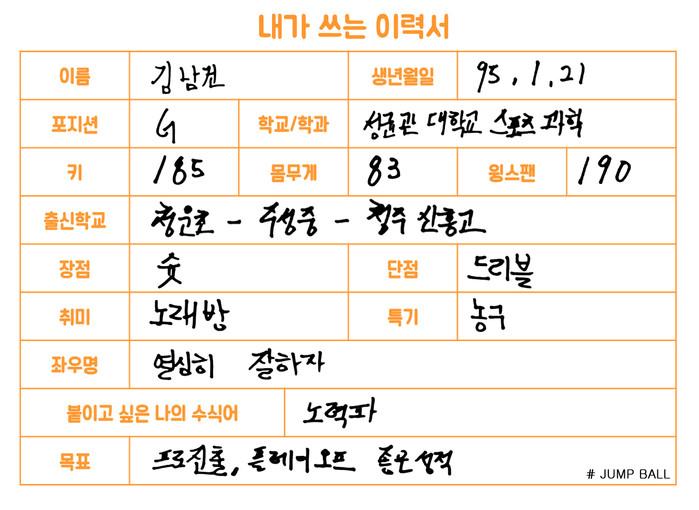 내가 쓰는 이력서
이름 김남건 생년월일 95.1.21
포지션 G 학교/학과 성균관 대학교 스포츠 과학
키 185 몸무게 83 윙스팬 190
출신학교 청운초 - 주성중 - 청주 신흥고
장점 슛 단점 드리블
취미 노래방 특기 농구
좌우명 열심히 잘하자
붙이고 싶은 나의 수식어 노력파
목표 프로진출, 플레이오프 좋은성적
# JUMP BALL